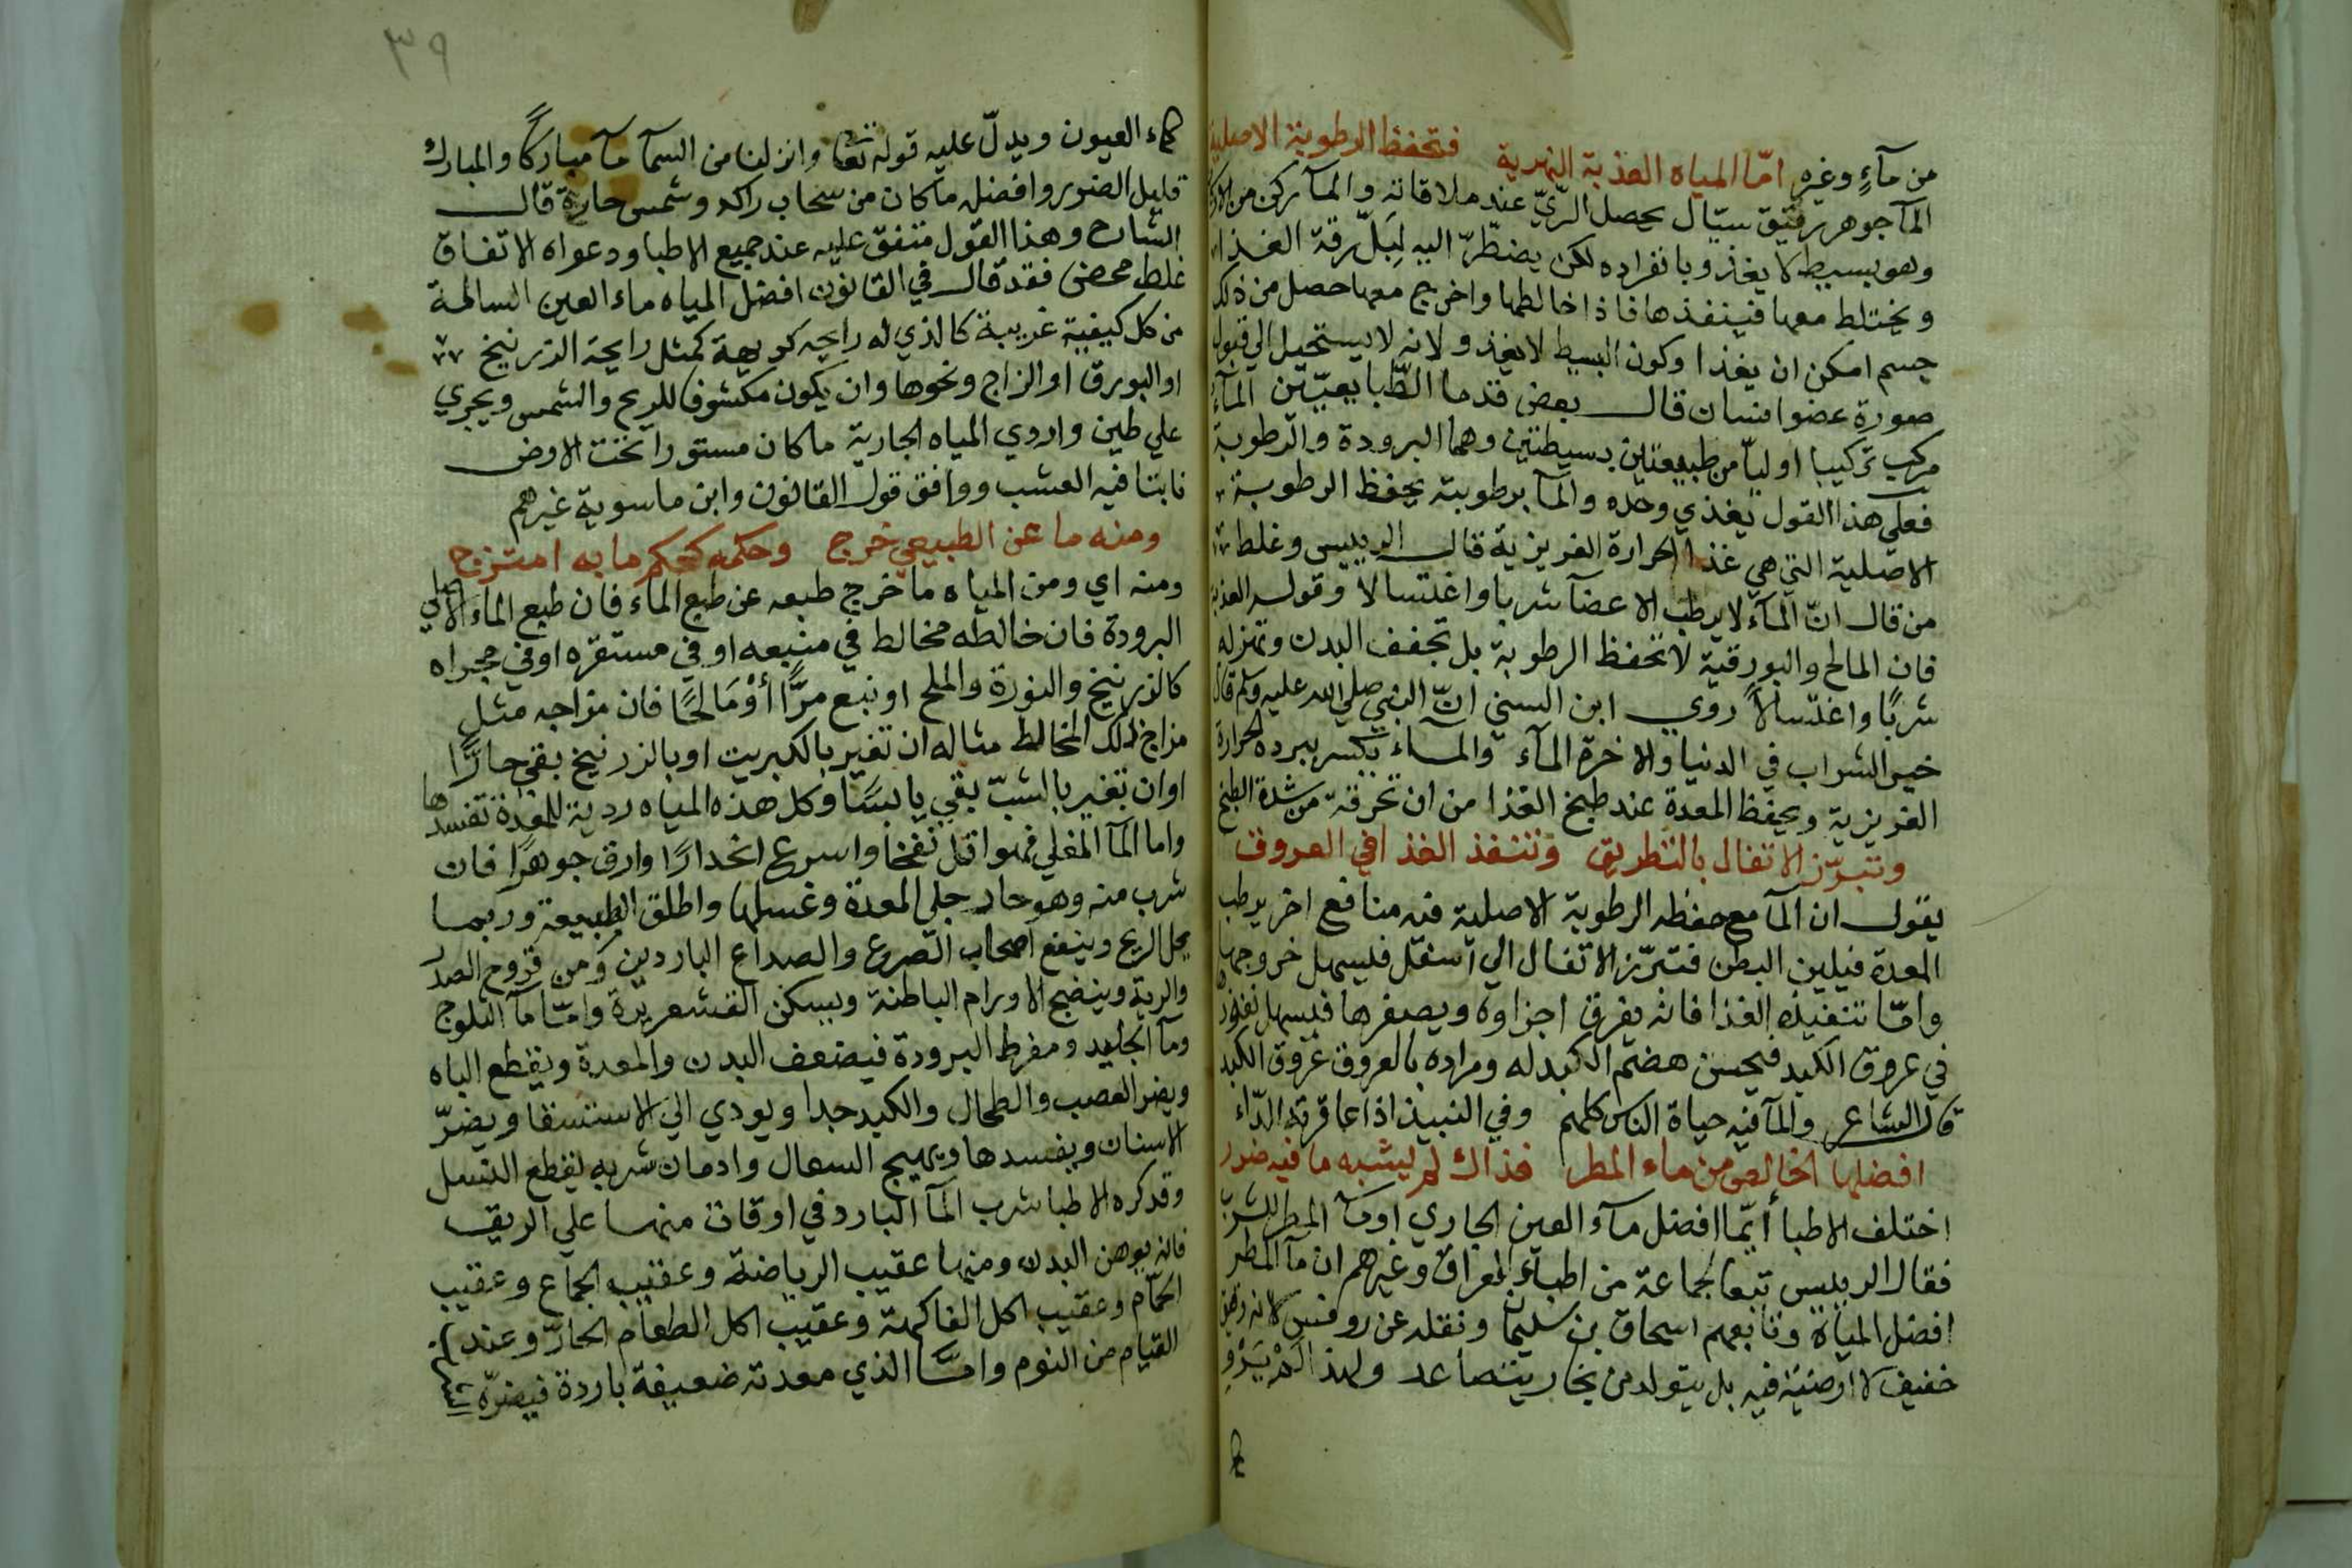 من مآءٍ وغيره امّا المياه العذبة النهرية فتحفظ الرطوبة الاصلية
المآ جوهر رقيق سيّال يحصل الرّيّ عند ملاقاته والمآ ركن من الاركان
وهو بسيط لا يغذو بانفراده لكن يضطرّ اليه لِبَلّ رقة الغذاء
ويختلط معها فينفذها فاذا خالطها واخرج معها حصل من ذلك
جسم امكن ان يغذا وكون البسيط لا يغذو لانه لا يستحيل الي قبول
صورة عضو انسان قال بعض قدما الطّبايعيّين المآء
مركب تركيبا اوليّا من طبيعتين بسيطتين وهما البرودة والرطوبة
فعلي هذا القول يغذي وحده والمآ برطوبته يحفظ الرطوبة
الاصلية التي هي غذا الحرارة الغريزية قال الرييس وغلط
من قال انّ المآء لا يرطب الاعضآ شربا واغتسالا وقوله العذبة
فان المالح والبورقية لا تحفظ الرطوبة بل تجفف البدن وتهزله
شربًا واغتسالًا روي ابن السني انّ النبي صلي الله عليه وسلم قال
خير الشراب في الدنيا والاخرة المآء والمـاء يكسر ببرده الحرارة
الغريزية ويحفظ المعدة عند طبخ الغذا من ان تحرقه من شدة الطبخ
وتبرّز الاتفال بالتطريق وتنفذ الغذا في العروق
يقول ان المآ مع حفظه الرطوبة الاصلية فيه منافع اخر يرطب
المعدة فيلين البطن فتبرّز الاتفال الي اسفل فليسهل خروجها
وامّا تنفيذه الغذا فانه يفرق اجزاوه ويصغرها فيسهل نفوذه
في عروق الكبد فيحسن هضم الكبد له ومراده بالعروق عروق الكبد
قال الشاعر والمآ فيه حياة الناس كلهم وفي النبيذ اذا عاقرته الدّاء
افضلها الخالص من ماء المطر فذاك لم يشبه ما فيه ضرر
اختلف الاطبا أيّما افضل مآء العين الجاري اومآ المطر للشرب
فقال الرييس تبعا لجماعة من اطباء العراق وغيرهم ان مآ المطر
افضل المياه وتابعهم اسحاق بن سليمان ونقله عن روفس لانه رقيق
خفيف لا ارضية فيه بل يتولد من بخار يتصاعد ولهذا
٣٩
كماء العيون ويدلّ عليه قوله تعا وانزلنا من السمآ مآ مباركًا والمبارك
قليل الضرر وافضله ما كان من سحاب راكد وشمس حارة قال
الشارح وهذا القول متفق عليه عند جميع الاطبا ودعواه الاتفاق
غلط محض فقد قال في القانون افضل المياه ماء العين السالمة
من كل كيفية غريبة كالذي له رايحه كريهة كمثل رايحة الزرنيخ
او البورق او الزاج ونحوها وان يكون مكشوفا للريح والشمس ويجري
علي طين واردي المياه الجارية ما كان مستورا تحت الارض
نابتا فيه العشب ووافق قول القانون وابن ماسوية غيرهم
ومنه ما عن الطبيعي خرج وحكمه كحكم ما به امتزج
ومنه اي ومن المياه ما خرج طبعه عن طبع الماء فان طبع الماء الاصلي
البرودة فان خالطه مخالط في منبعه او في مستقرّه او في مجراه
كالزرنيخ والنورة والملح او نبع مرًّا أوْ مَالحًا فان مزاجه مثل
مزاج ذلك المخالط مثاله ان تغير بالكبريت او بالزرنيخ بقي حارًّا
او ان تغير بالشبّ بقي يابسًا وكل هذه المياه ردية للمعدة تفسدها
واما المآ المغلي فهو اقل نفخا واسرع انحدارًا وارق جوهرًا فان
شرب منه وهو حار جلي المعدة وغسلها واطلق الطبيعة وربما
يحل الريح وينفع اصحاب الصرع والصداع الباردين ومن قروح الصدر
والرية وينضج الاورام الباطنة ويسكن القشعريرة وامّا مآ الثلوج
ومآ الجليد ومفرط البرودة فيضعف البدن والمعدة ويقطع الباه
ويضر العصب والطحال والكبد جدا ويودي الي الاستسقا ويضرّ
الاسنان ويفسدها ويهيج السعال وادمان شربه يقطع النسل
وقد كره الاطبا شرب المآ البارد في اوقات منها علي الريق
فانه يوهن البدن ومنها عقيب الرياضة وعقيب الجماع وعقيب
الحمّام وعقيب اكل الفاكهة وعقيب اكل الطعام الحارّ وعند
القيام من النوم وامّا الذي معدته ضعيفة باردة فيضرّه